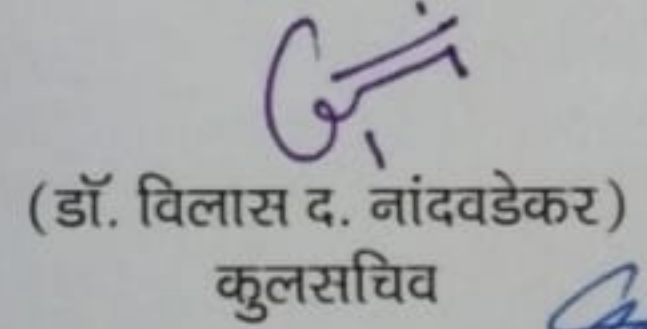 (डॉ. विलास द. नांदवडेकर)
कुलसचिव